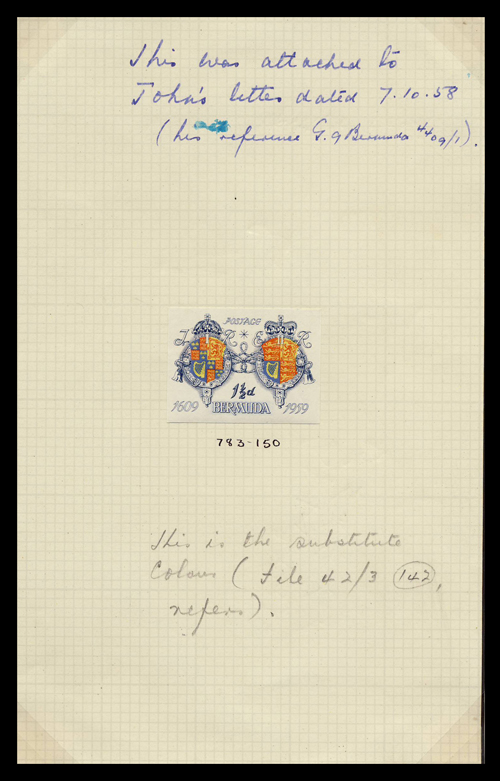 This was attached to
John's letter dated 7.10.58
(his reference G.9 Bermuda 4409/1).
POSTAGE
J R * E R
1½d
1609 BERMUDA 1959
783-150
This is the substitute
Colour (File 42/3 (142),
refers).